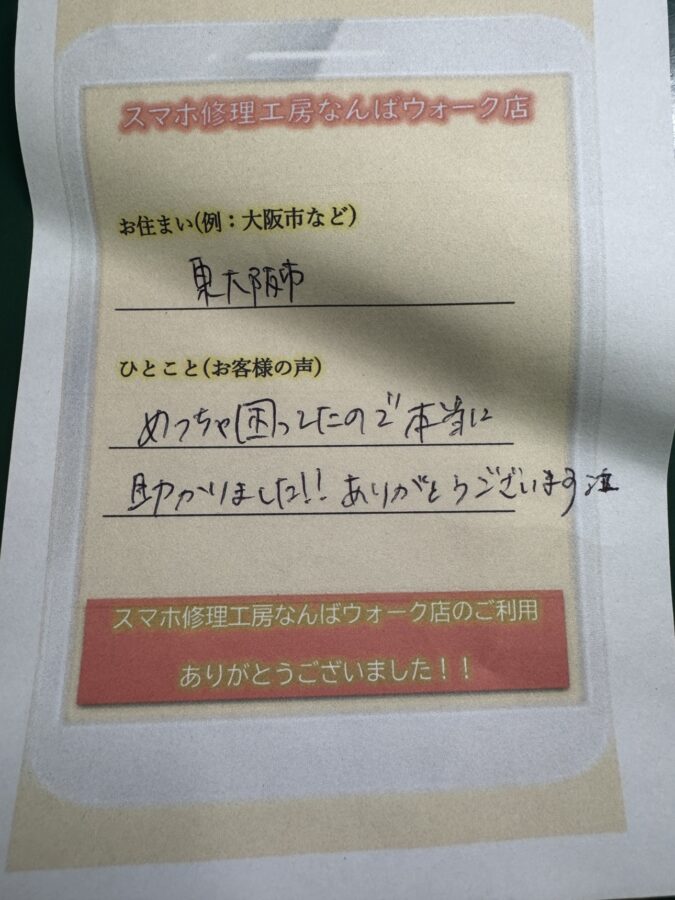 スマホ修理工房なんばウォーク店
お住まい(例：大阪市など)
東大阪市
ひとこと(お客様の声)
めっちゃ困ってたので本当に
助かりました!! ありがとうございます
スマホ修理工房なんばウォーク店のご利用
ありがとうございました！！